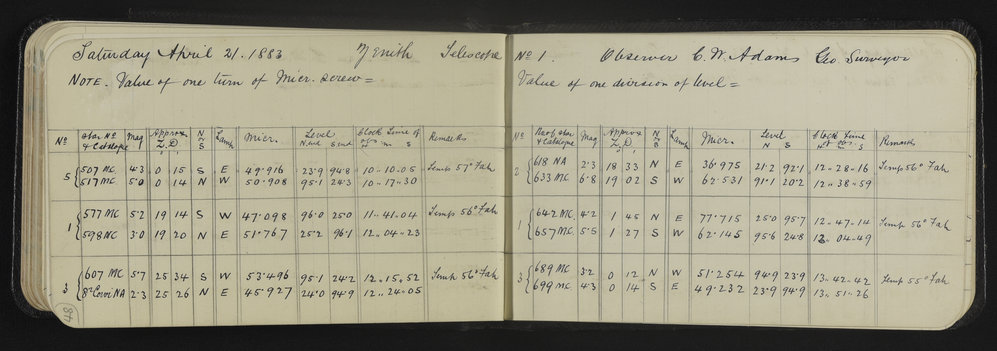 Saturday April 21. 1883 Zenith Telescope
NOTE. Value of one turn of Micr. screw =
No Star No & Catalogue Mag Approx Z.D. N or S Lamp Micr. Level N end S end Clock Time of obs h m s Remarks
5 { 507 MC 4.3 0 15 S E 49.916 23.9 94.8 10..10..05 Temp 57° Fah
517 MC. 5.0 0 14 N W 50.908 95.1 24.3 10..17..30
1 { 577 MC 5.2 19 14 S W 47.098 96.0 25.0 11..41..04 Temp 56° Fah
598 MC 3.0 19 20 N E 51.767 25.2 96.1 12..04..23
3 { 607 MC 5.7 25 34 S W 53.496 95.1 24.2 12..15..52 Temp 56° Fah
β² Corvi NA 2.3 25 26 N E 45.927 24.0 94.9 12..24..05
48
No 1. Observer C. W. Adams Geo Surveyor
Value of one division of level =
No No of Star & Catalogue Mag Approx Z.D N or S Lamp Micr. Level N S Clock Time of obs. h m s Remarks
2 { 618 NA 2.3 18 33 N E 36.975 21.2 92.1 12..28..16 Temp 56° Fah
633 MC 6.8 19 02 S W 62.531 91.1 20.2 12..38..59
1 { 642 MC 4.2 1 45 N E 77.715 25.0 95.7 12..47..14 Temp 56° Fah
657 MC 5.5 1 27 S W 62.145 95.6 24.8 13..04..49
3 { 689 MC 3.2 0 12 N W 51.254 94.9 23.9 13..42..42 Temp 55° Fah
699 MC 4.3 0 14 S E 49.232 23.9 94.9 13..51..26